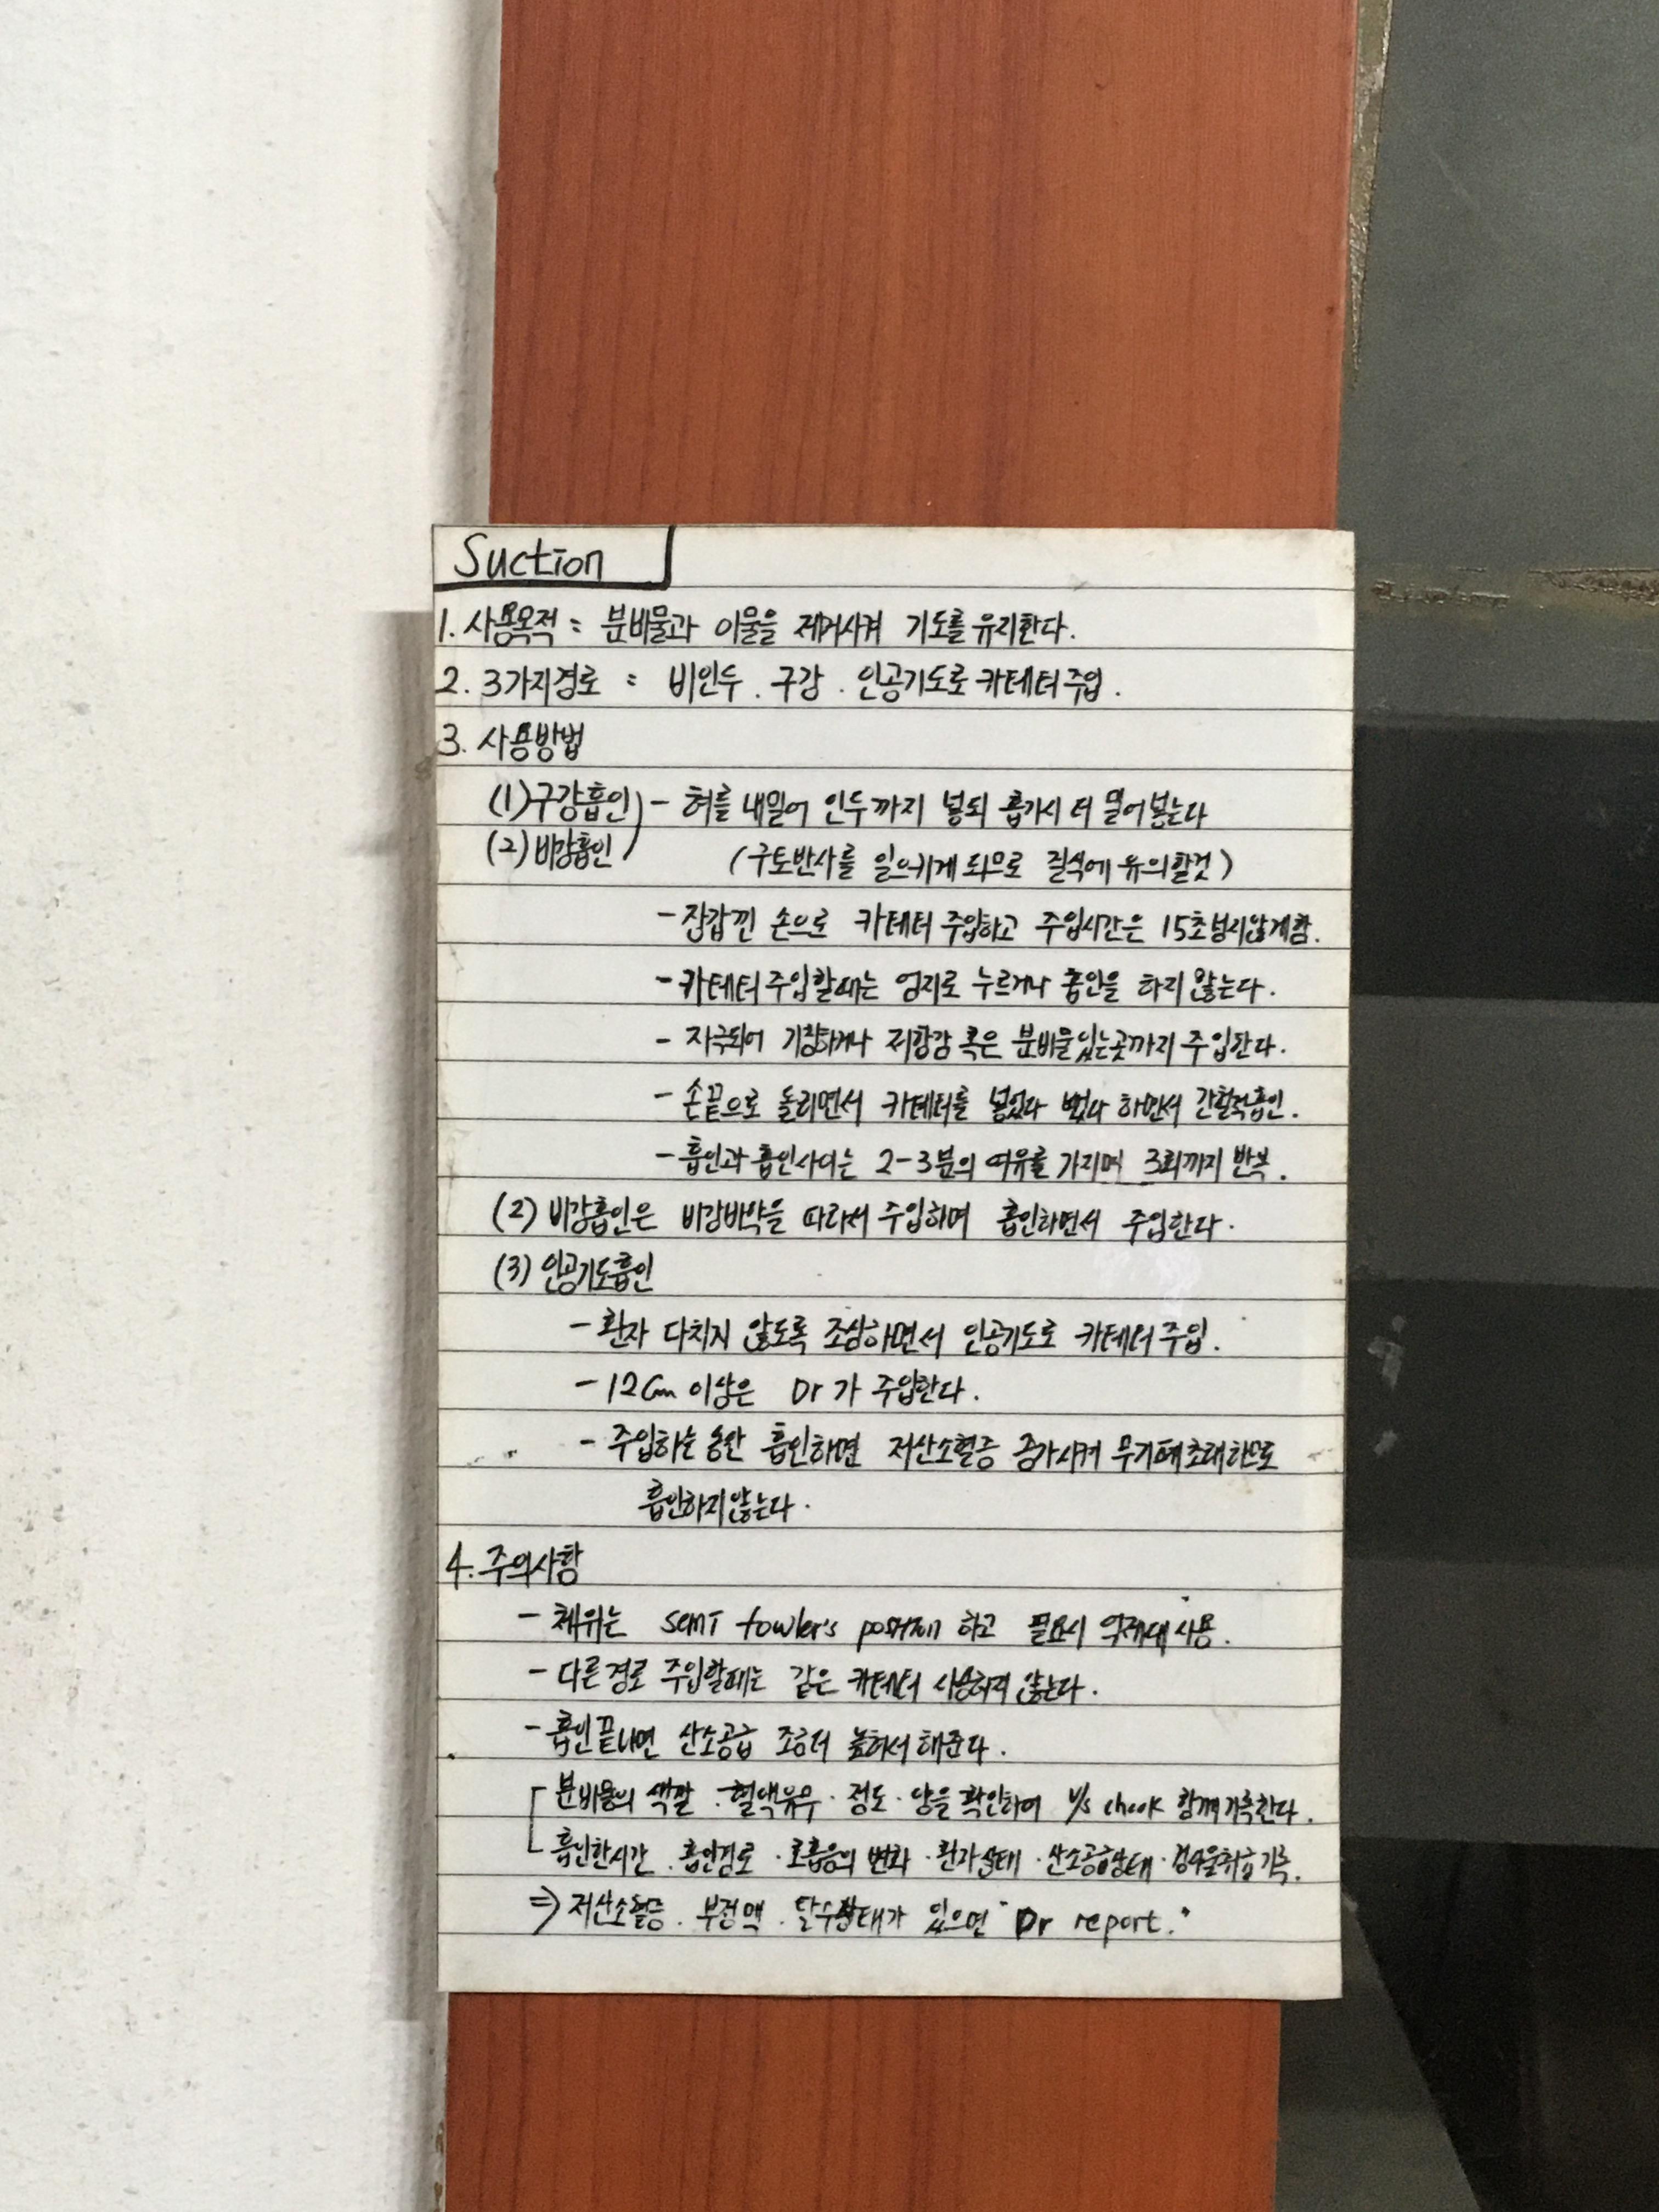 Suction
1. 사용목적 : 분비물과 이물을 제거시켜 기도를 유지한다.
2. 3가지경로 : 비인두. 구강. 인공기도로 카테터 주입.
3. 사용방법
(1) 구강흡인 - 혀를 내밀어 인두까지 넣되 흡기시 더 밀어 넣는다
(2) 비강흡인 (구토반사를 일으키게 되므로 질식에 유의할것)
- 장갑낀 손으로 카테터 주입하고 주입시간은 15초 넘지않게함.
- 카테터 주입할때는 엄지로 누르거나 흡인을 하지 않는다.
- 자극되어 기침하거나 저항감 혹은 분비물있는곳까지 주입한다.
- 손끝으로 돌리면서 카테터를 넣었다 뺐다 하면서 간헐적흡인.
- 흡인과 흡인사이는 2-3분의 여유를 가지며 3회까지 반복.
(2) 비강흡인은 비강바닥을 따라서 주입하며 흡인하면서 주입한다.
(3) 인공기도흡인
- 환자 다치지 않도록 조심하면서 인공기도로 카테터 주입.
- 12cm 이상은 Dr가 주입한다.
- 주입하는동안 흡인하면 저산소혈증 증가시켜 무기폐초래하므로
흡인하지않는다.
4. 주의사항
- 체위는 semi fowler's position 하고 필요시 억제대 사용.
- 다른경로 주입할때는 같은 카테터 사용하지 않는다.
- 흡인끝나면 산소공급 조금더 높혀서 해준다.
분비물의 색깔. 혈액유무. 점도. 양을 확인하여 V/S check 함께기록한다.
흡인한시간. 흡인경로. 호흡음의 변화. 환자상태. 산소공급상태.
⇒ 저산소혈증. 부정맥. 탈수상태가 있으면 "Dr report."